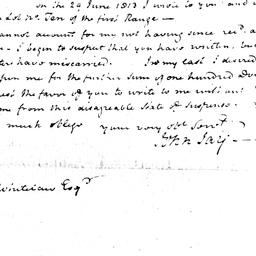 on the 29 June 1813 I wrote to you
Lot No. Ten of the first Range —
cannot account for my not having since recd. a
I begin to suspect that you have written, and
ter have miscarried. In my last I desired
upon me for the further sum of one hundred Do
est the favor of you to write to me without
me from this disagreeable State of suspense.
much oblige your very obt. Servt.
John Jay —
Esqr